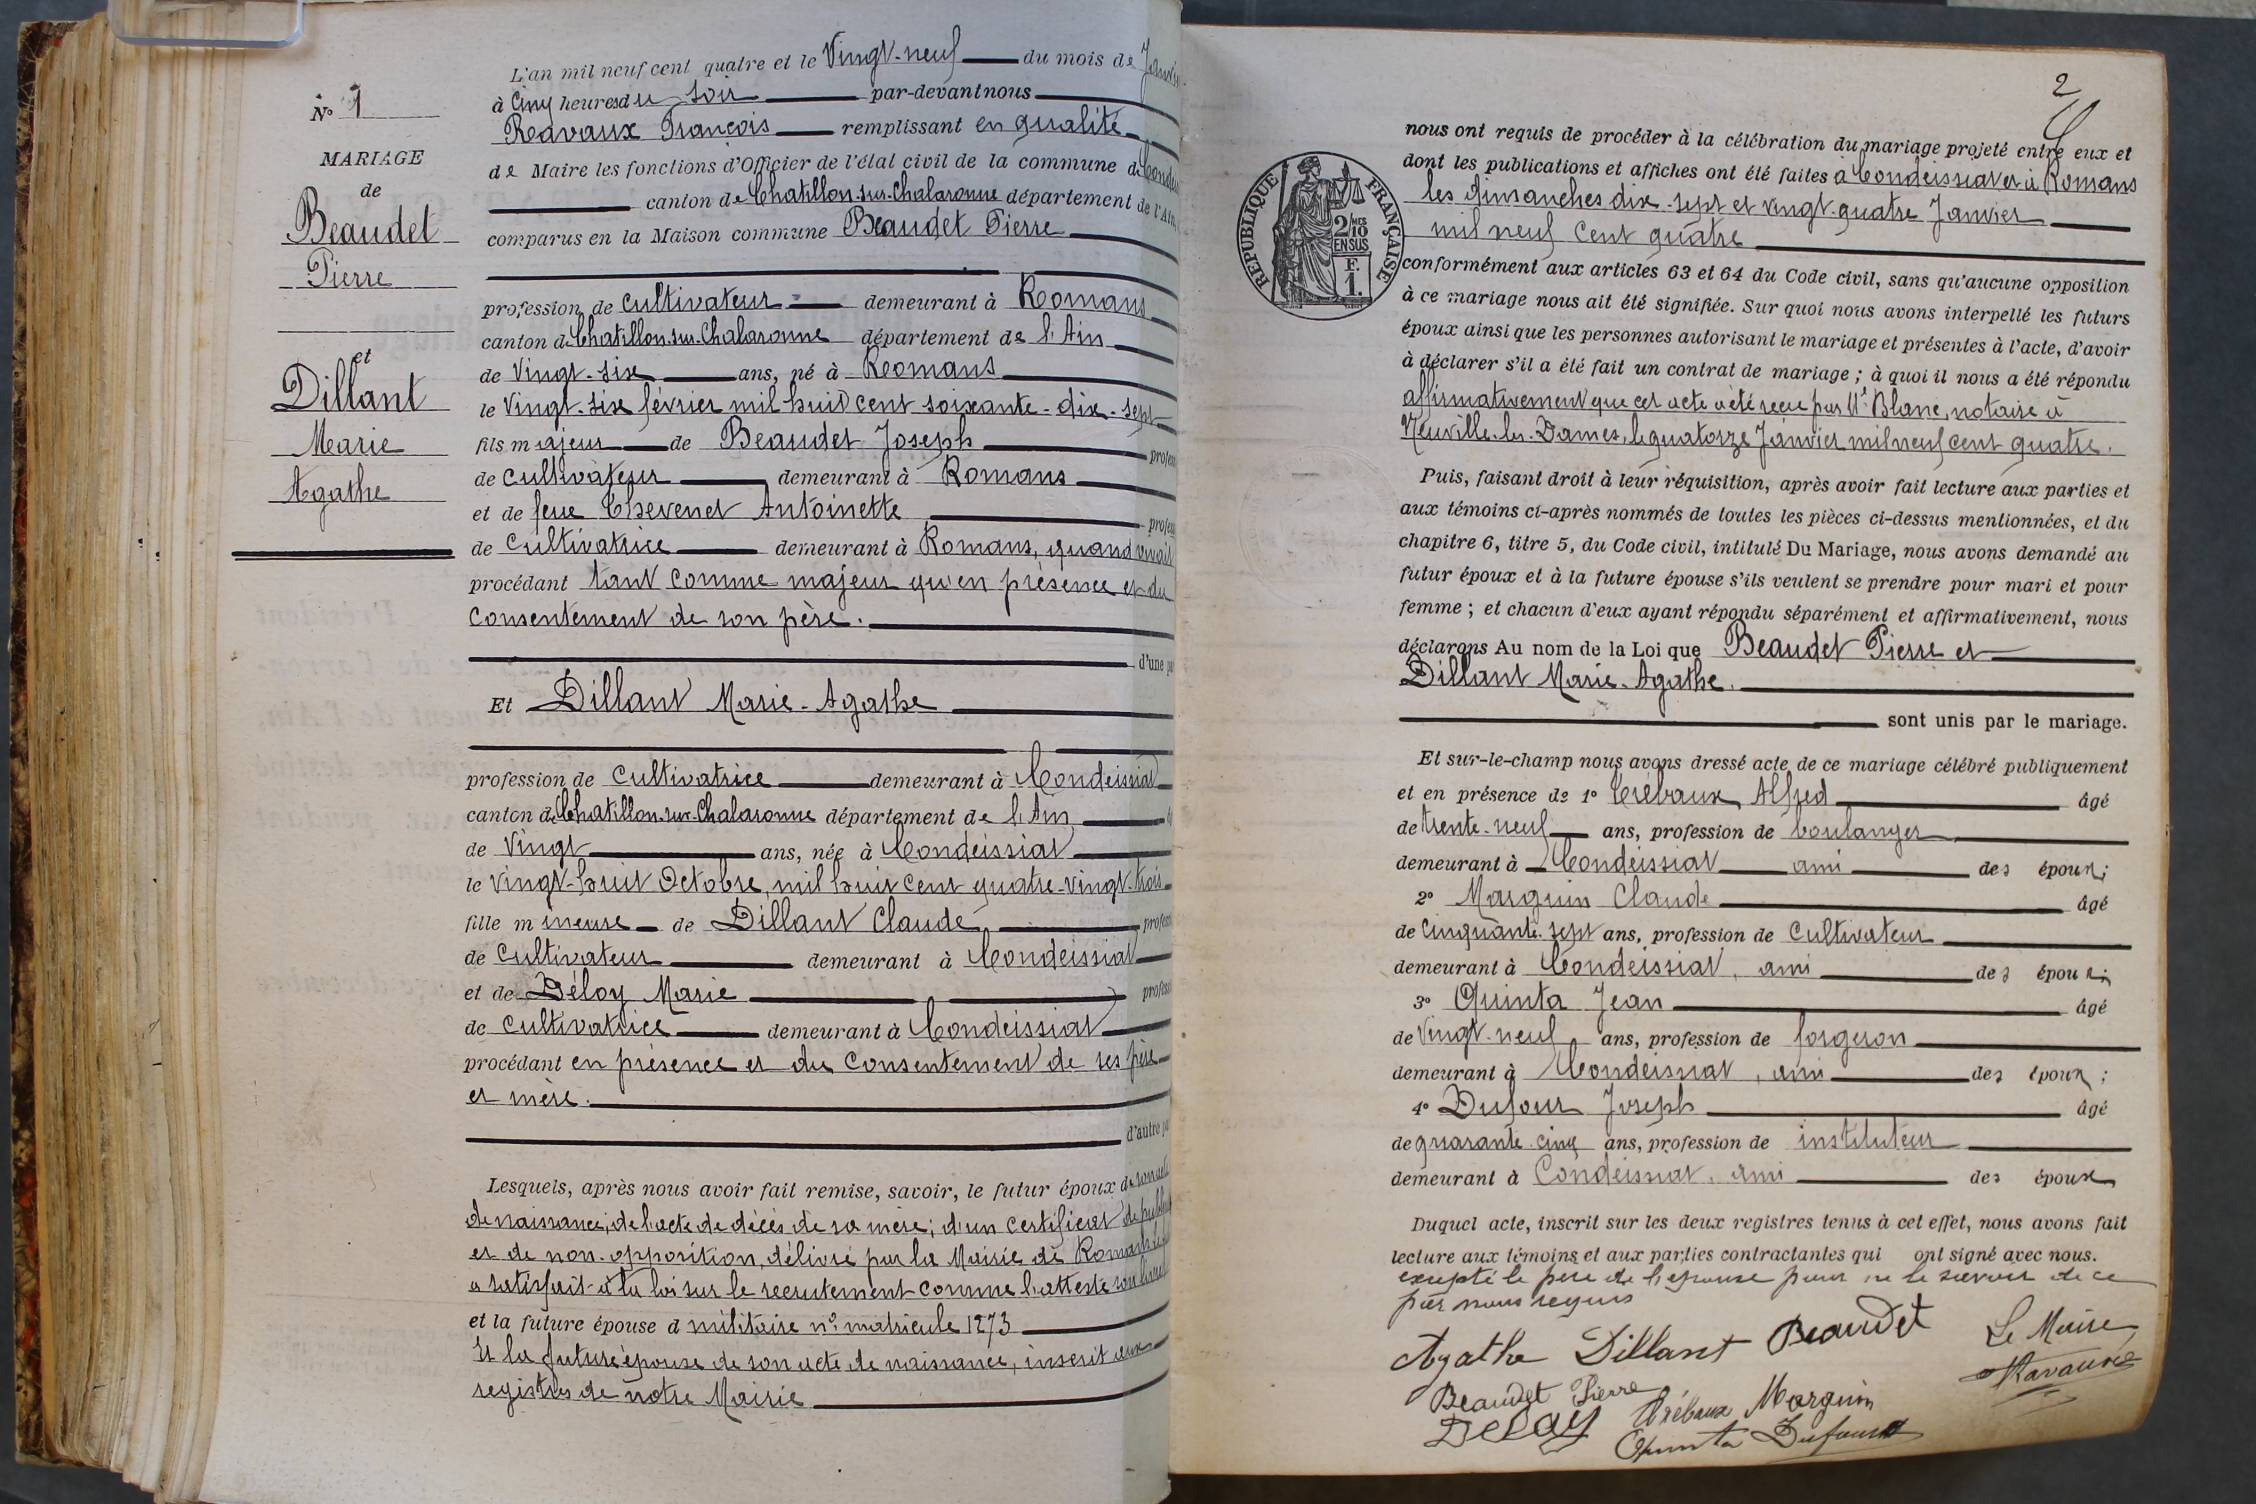 N° 1
MARIAGE
de
Beaudet
Pierre
et
Dillant
Marie
Agathe
L'an mil neuf cent quatre et le Vingt-neuf du mois de Janvier
à Cinq heures du soir par-devant nous
Ravaux François remplissant en qualité
de Maire les fonctions d'Officier de l'état civil de la commune de
canton de Chatillon-sur-Chalaronne département de l'Ain
comparus en la Maison commune Beaudet Pierre
profession de cultivateur demeurant à Romans
canton de Chatillon-sur-Chalaronne département de l'Ain
de Vingt-six ans, né à Romans
le Vingt-six février mil huit cent soixante-dix-sept
fils majeur de Beaudet Joseph
de cultivateur demeurant à Romans
et de feue Chevenet Antoinette
de Cultivatrice demeurant à Romans, quand vivait
procédant tant comme majeur qu'en présence et du
consentement de son père.
d'une
Et Dillant Marie-Agathe
profession de cultivatrice demeurant à Condeissiat
canton de Chatillon-sur-Chalaronne département de l'Ain
de Vingt ans, née à Condeissiat
le Vingt-huit Octobre, mil huit cent quatre-vingt-trois
fille mineure de Dillant Claude
de Cultivateur demeurant à Condeissiat
et de Déloy Marie
de cultivatrice demeurant à Condeissiat
procédant en présence et du consentement de ses père
et mère.
d'autre
Lesquels, après nous avoir fait remise, savoir, le futur époux de
de naissance; de l'acte de décès de sa mère; d'un certificat de
et de non-opposition, délivré par la Mairie de Romans
a satisfait à la loi sur le recrutement comme l'atteste son livret
et la future épouse d militaire n° matricule 1273
Et la future épouse de son acte de naissance, inscrit aux
registres de notre Mairie
2
nous ont requis de procéder à la célébration du mariage projeté entre eux et
dont les publications et affiches ont été faites à Condeissiat et à Romans
les dimanches dix-sept et vingt-quatre Janvier
mil neuf cent quatre
RÉPUBLIQUE FRANÇAISE
2 MES
10
EN SUS
F.
1.
conformément aux articles 63 et 64 du Code civil, sans qu'aucune opposition
à ce mariage nous ait été signifiée. Sur quoi nous avons interpellé les futurs
époux ainsi que les personnes autorisant le mariage et présentes à l'acte, d'avoir
à déclarer s'il a été fait un contrat de mariage ; à quoi il nous a été répondu
affirmativement que cet acte a été reçu par Me Blanc, notaire à
Neuville-les-Dames, le quatorze Janvier mil neuf cent quatre.
Puis, faisant droit à leur réquisition, après avoir fait lecture aux parties et
aux témoins ci-après nommés de toutes les pièces ci-dessus mentionnées, et du
chapitre 6, titre 5, du Code civil, intitulé Du Mariage, nous avons demandé au
futur époux et à la future épouse s'ils veulent se prendre pour mari et pour
femme ; et chacun d'eux ayant répondu séparément et affirmativement, nous
déclarons Au nom de la Loi que Beaudet Pierre et
Dillant Marie-Agathe.
sont unis par le mariage.
Et sur-le-champ nous avons dressé acte de ce mariage célébré publiquement
et en présence de 1° Trébaux, Alfred âgé
de trente-neuf ans, profession de boulanger
demeurant à Condeissiat ami des époux;
2° Marguin Claude âgé
de Cinquante-sept ans, profession de Cultivateur
demeurant à Condeissiat, ami des époux;
3° Quinta Jean âgé
de Vingt-neuf ans, profession de forgeron
demeurant à Condeissiat, ami des époux;
4° Dufour Joseph âgé
de quarante-cinq ans, profession de instituteur
demeurant à Condeissiat, ami des époux
Duquel acte, inscrit sur les deux registres tenus à cet effet, nous avons fait
lecture aux témoins et aux parties contractantes qui ont signé avec nous.
excepté le père de l'épouse pour ne le savoir de ce
par nous requis
Agathe Dillant Beaudet Le Maire
Ravaux
Beaudet Pierre Trébaux Marguin
Deloy Quinta Dufour